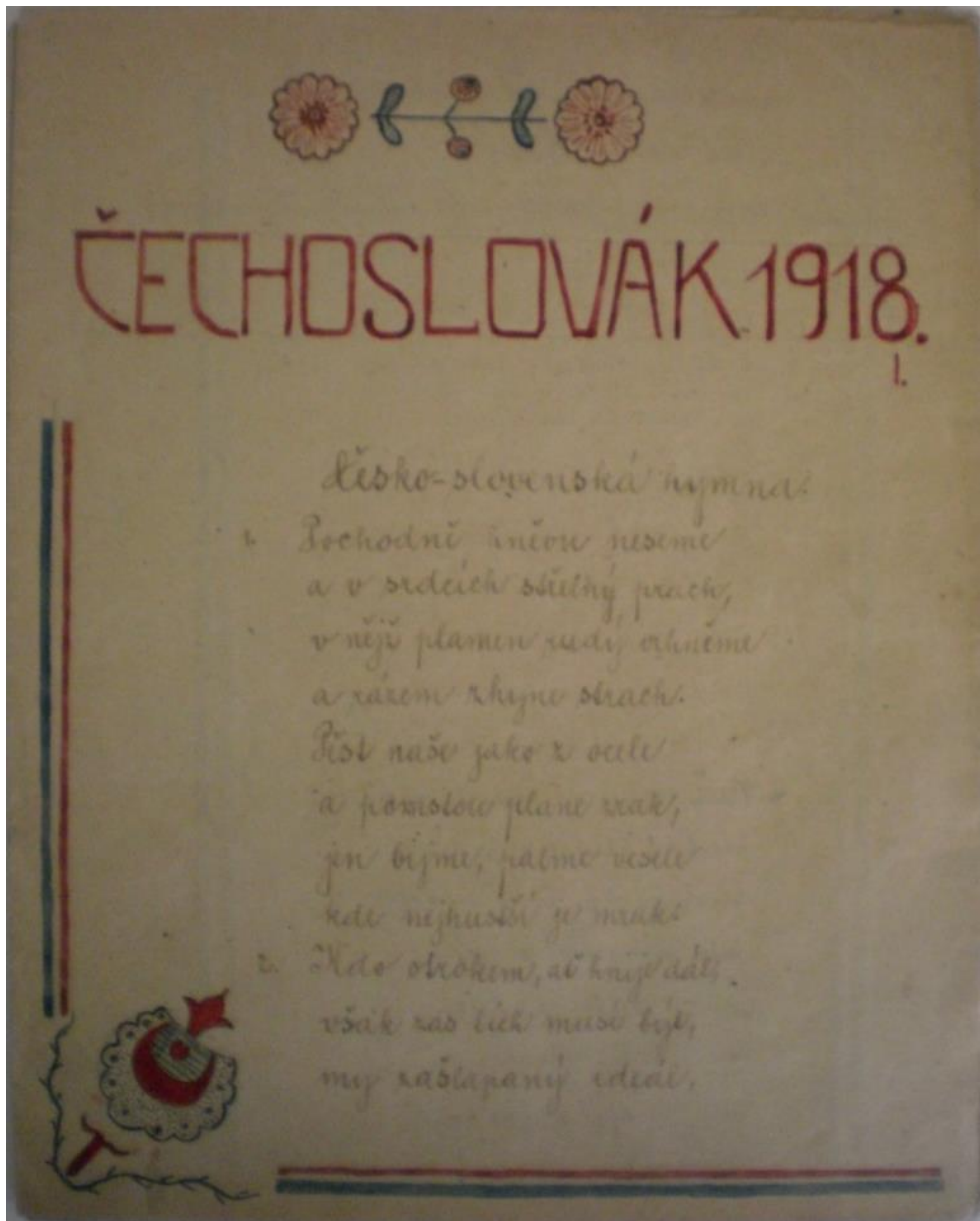 ČECHOSLOVÁK 1918.
I.
Česko-slovenská hymna.
1. Pochodně hněvu neseme
a v srdcích střelný prach,
v nějž plamen rudý vrhneme
a rázem zhyne strach.
Pěst naše jako z ocele
a pomstou plane zrak,
jen bijme, palme vesele
kde nejhustší je mrak.
2. Kdo otrokem, ať hnije dál,
však zas lich musí být,
my zašlapaný ideál.